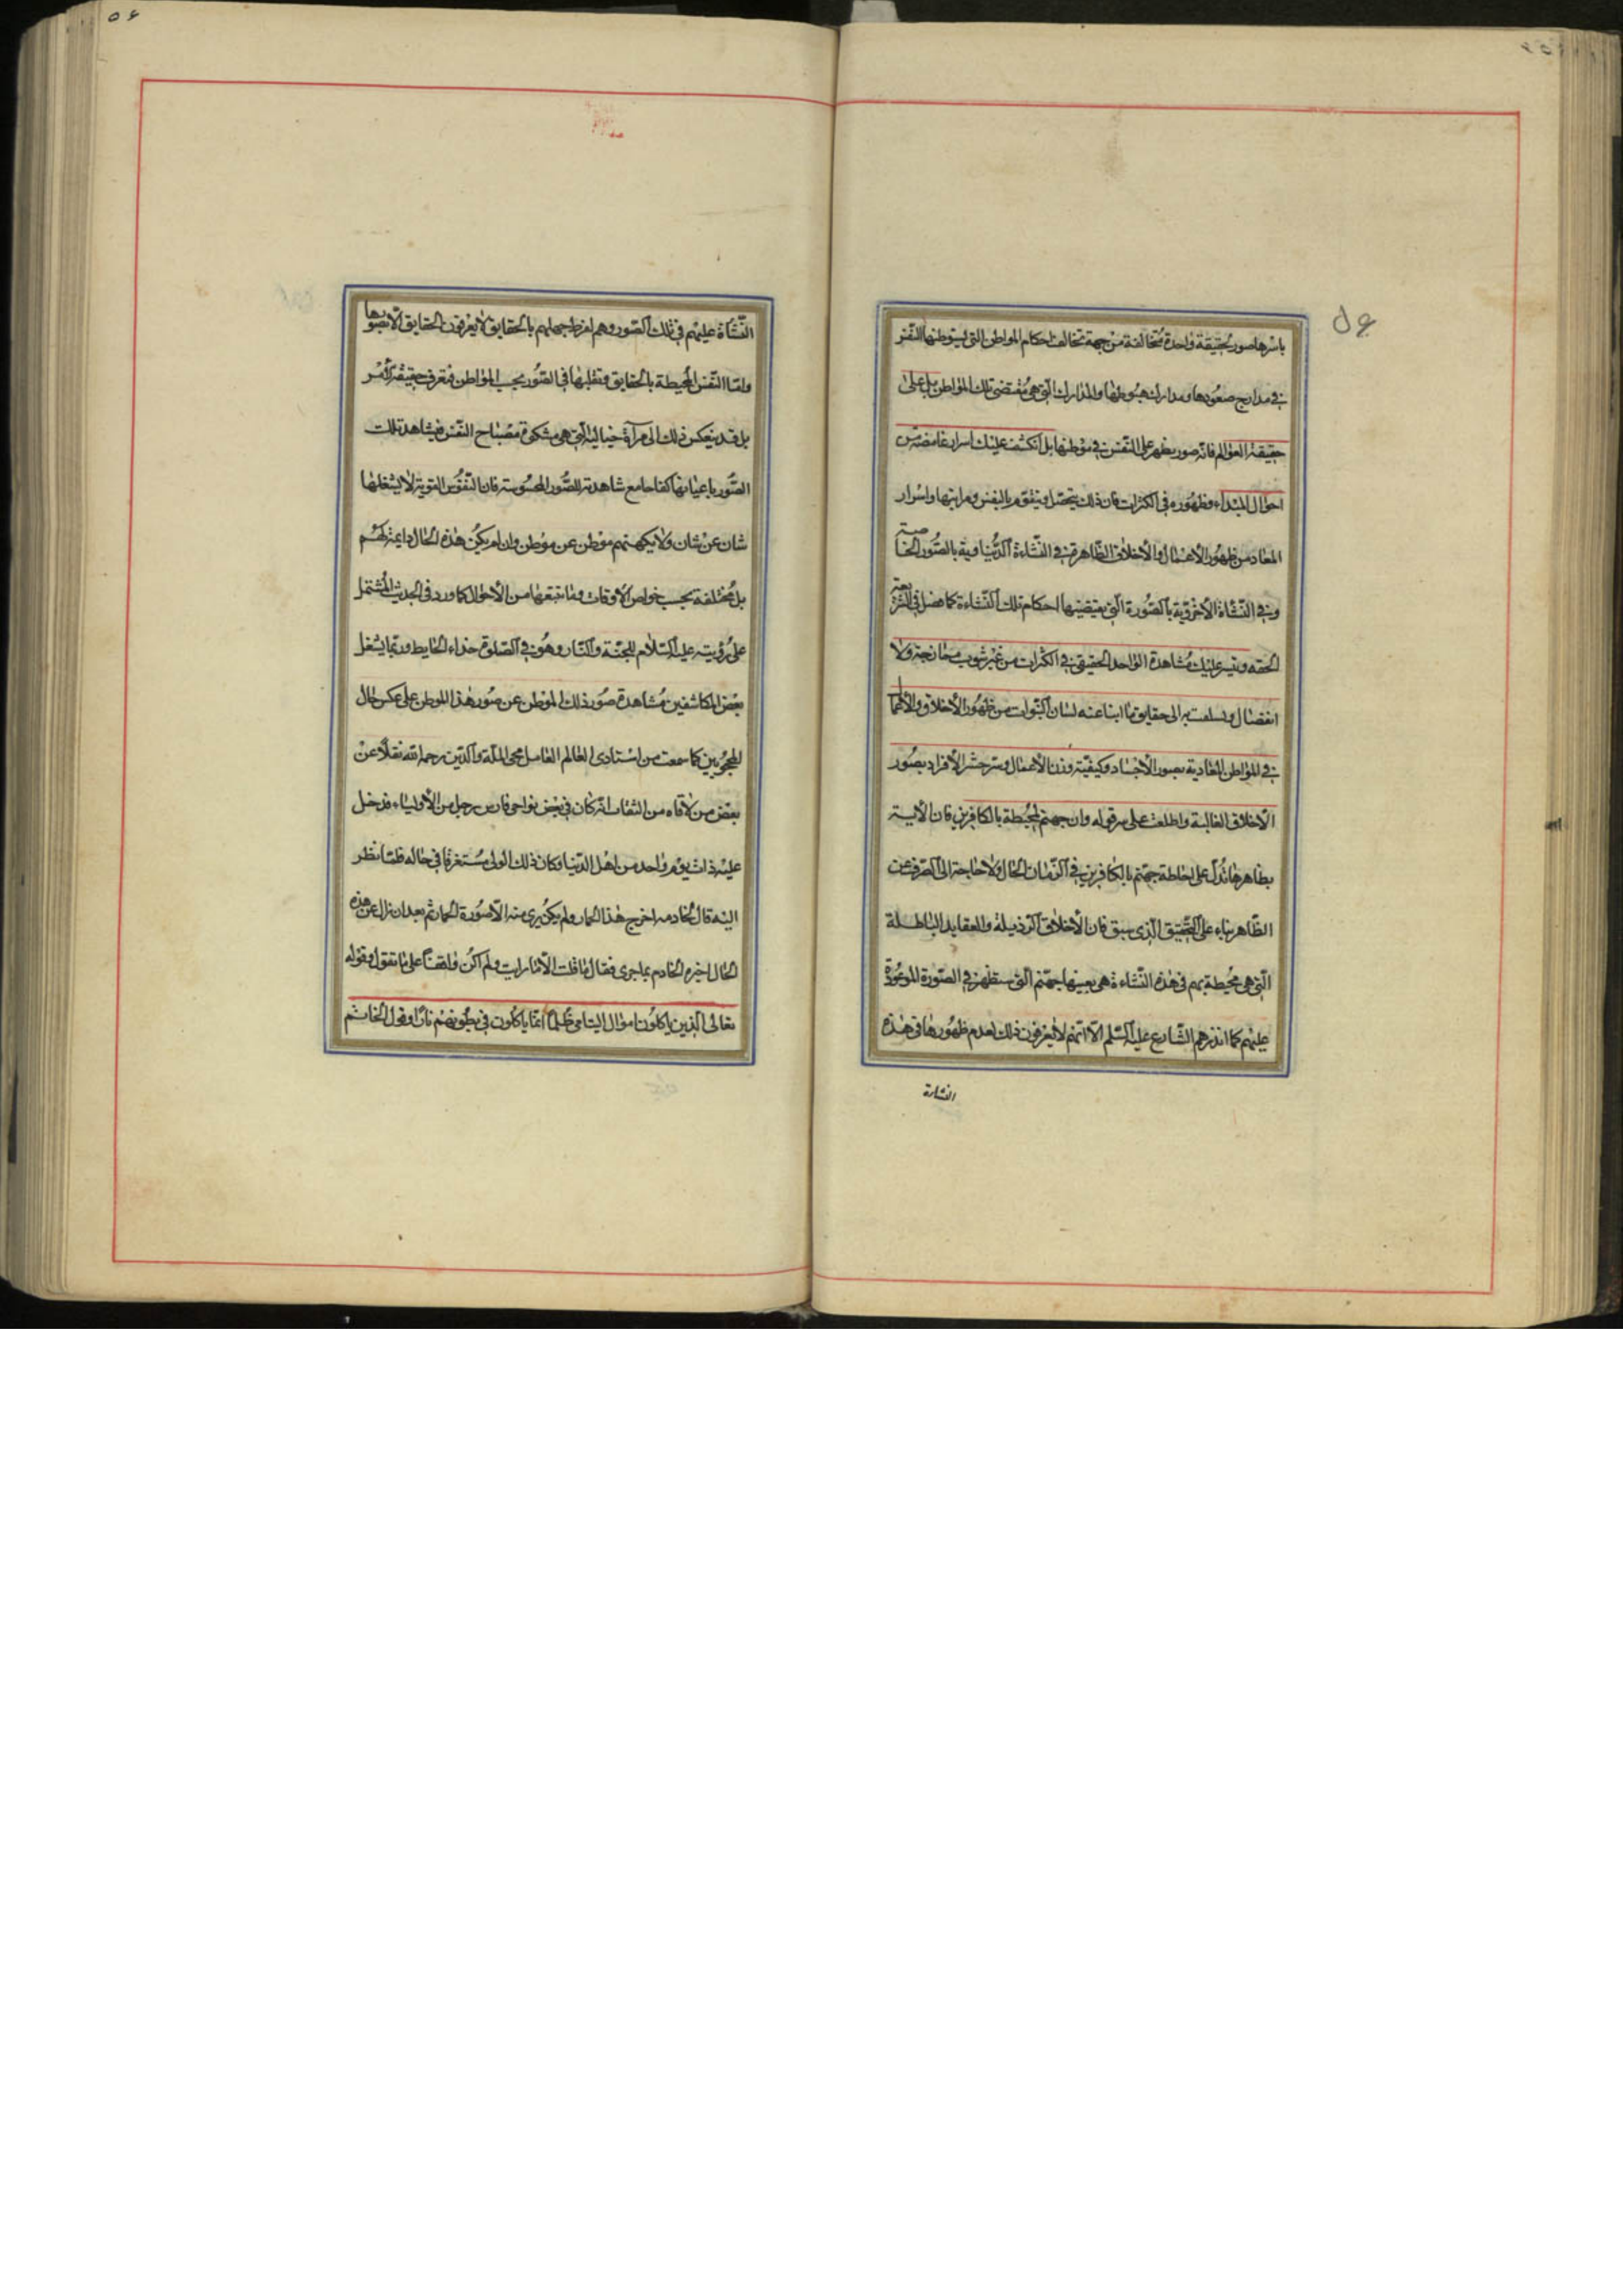 باسرها صور لحقيقة واحدة متخالفة من جهة تخالف احكام المواطن التى يستوطنها النفس
فى مدارج صعودها ومدارك هبوطها والمدارك التى هى مقتضى تلك المواطن بل على
حقيقة العوالم فانه صور يظهر على النفس فى موطنها بل انكشف عليك اسرار غامضة من
احوال المبداء وظهوره فى الكثرات فان ذلك يتحصل ويتقوم بالنفس ومراتبها واسرار
المعاد من ظهور الاعمال والاخلاق الظاهرة فى النشاءة الدنياوية بالصور الخاصة
وفى النشاة الاخروية بالصورة التى يقتضيها احكام تلك النشاءة كما فصل فى الشريعة
الحقه ويتيسر عليك مشاهدة الواحد الحقيقى فى الكثرات من غير شوب ممازجة ولا
انفصال وتسلقت به الى حقايق ما انبا عنه لسان النبوات من ظهور الاخلاق والاعمال
فى المواطن المعادية بصور الاجساد وكيفية وزن الاعمال وسر حشر الافراد بصور
الاخلاق الغالبة واطلعت على سر قوله وان جهنم لمحيطة بالكافرين فان الاية
بظاهرها تدل على احاطة جهنم بالكافرين فى الزمان الحال ولا حاجة الى الصرف عن
الظاهر بناء على التحقيق الذى سبق فان الاخلاق الرذيلة والعقايد الباطلة
التى هى محيطة بهم فى هذه النشاءة هى بعينها جهنم التى ستظهر فى الصورة الموعودة
عليهم كما انذرهم الشارع عليه السلم الا انهم لا يعرفون ذلك لعدم ظهورها فى هذه
النشاءة
النشأة عليهم فى تلك الصور وهم لفرط جهلهم بالحقايق لا يعرفون الحقايق الا بصورها
واما النفس المحيطة بالحقايق وتقلبها فى الصور بحسب المواطن فتعرف حقيقة الامر
بل قد ينعكس ذلك الى مرآة خياليه التى هى مشكوة مصباح النفس فيشاهد تلك
الصور باعيانها كفاحا مع شاهدته للصور المحسوسة فان النفوس القوية لا يشغلها
شان عن شان ولا يكهنهم موطن عن موطن وان لم يكن هذه الحال دايمة لهم
بل مختلفة بحسب خواص الاوقات وما تتبعها من الاحوال كما ورد فى الحديث المشتمل
على رؤيته عليه السلام للجنة والنار وهو فى الصلوة حذاء الحايط وربما يشغل
بعض المكاشفين مشاهدة صور ذلك الموطن عن صور هذا الموطن على عكس حال
المحجوبين كما سمعت من استادى العالم العامل محى الملة والدين رحمه الله نقلا عن
بعض من لاقاه من الثقات انه كان فى بعض نواحى فارس رجل من الاولياء فدخل
عليه ذات يوم واحد من اهل الدنيا وكان ذلك الولى مستغرقا فى حاله فلما نظر
اليه قال لخادمه اخرج هذا الحمار ولم يكن يرى منه الا صورة الحمار ثم بعد ان نزل عن هذه
الحال اخبره الخادم بما جرى فقال ما قلت الا ما رايت ولم اكن واقفا على ما تقول وقوله
تعالى الذين ياكلون اموال اليتامى ظلما انما ياكلون فى بطونهم نارا وقول الخاتم